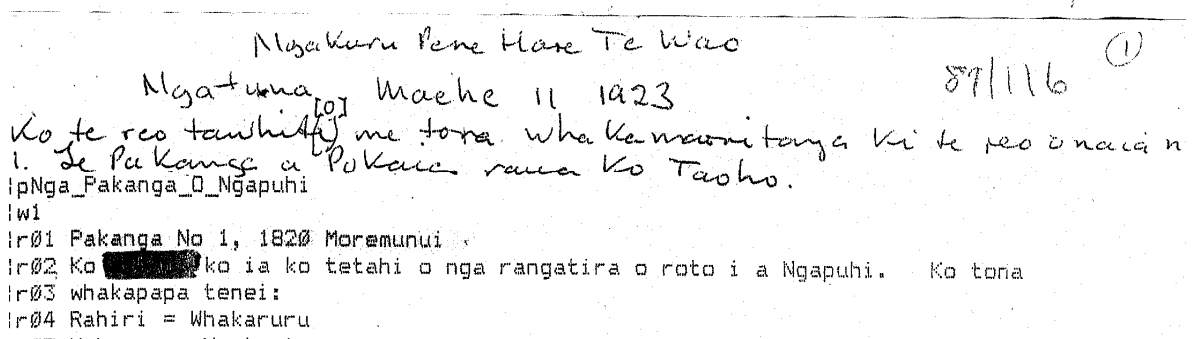 Ngakuru Pene Hare Te Wao
①
Ngatuna, Maehe 11 1923
89/116
[o]
Ko te reo tawhiti me tona whakamaoritanga ki te reo onaian
1. Te Pakanga a Pokaia raua ko Taoho.
|pNga_Pakanga_O_Ngapuhi
|w1
|r01 Pakanga No 1, 1820 Moremunui
|r02 Ko ko ia ko tetahi o nga rangatira o roto i a Ngapuhi. Ko tona
|r03 whakapapa tenei:
|r04 Rahiri = Whakaruru